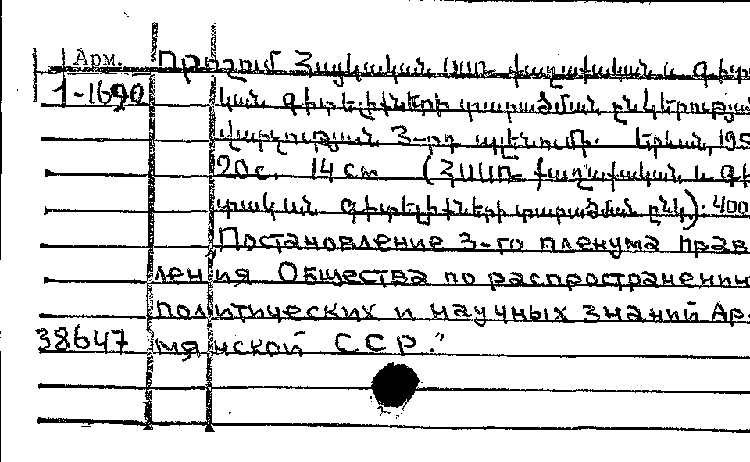 Арм. Որոշում Հայկական ՍՍՌ քաղաքական և գիտ
1-1690 կան գիտելիքների տարածման ընկերության
վարչության 3-րդ պլենումի. Երևան, 195
20с. 14 см (ՀՍՍՌ քաղաքական և գի
տական գիտելիքների տարածման ընկ): 400
Постановление 3-го пленума прав
ления Общества по распространению
политических и научных знаний Ар-
38647 мянской ССР."